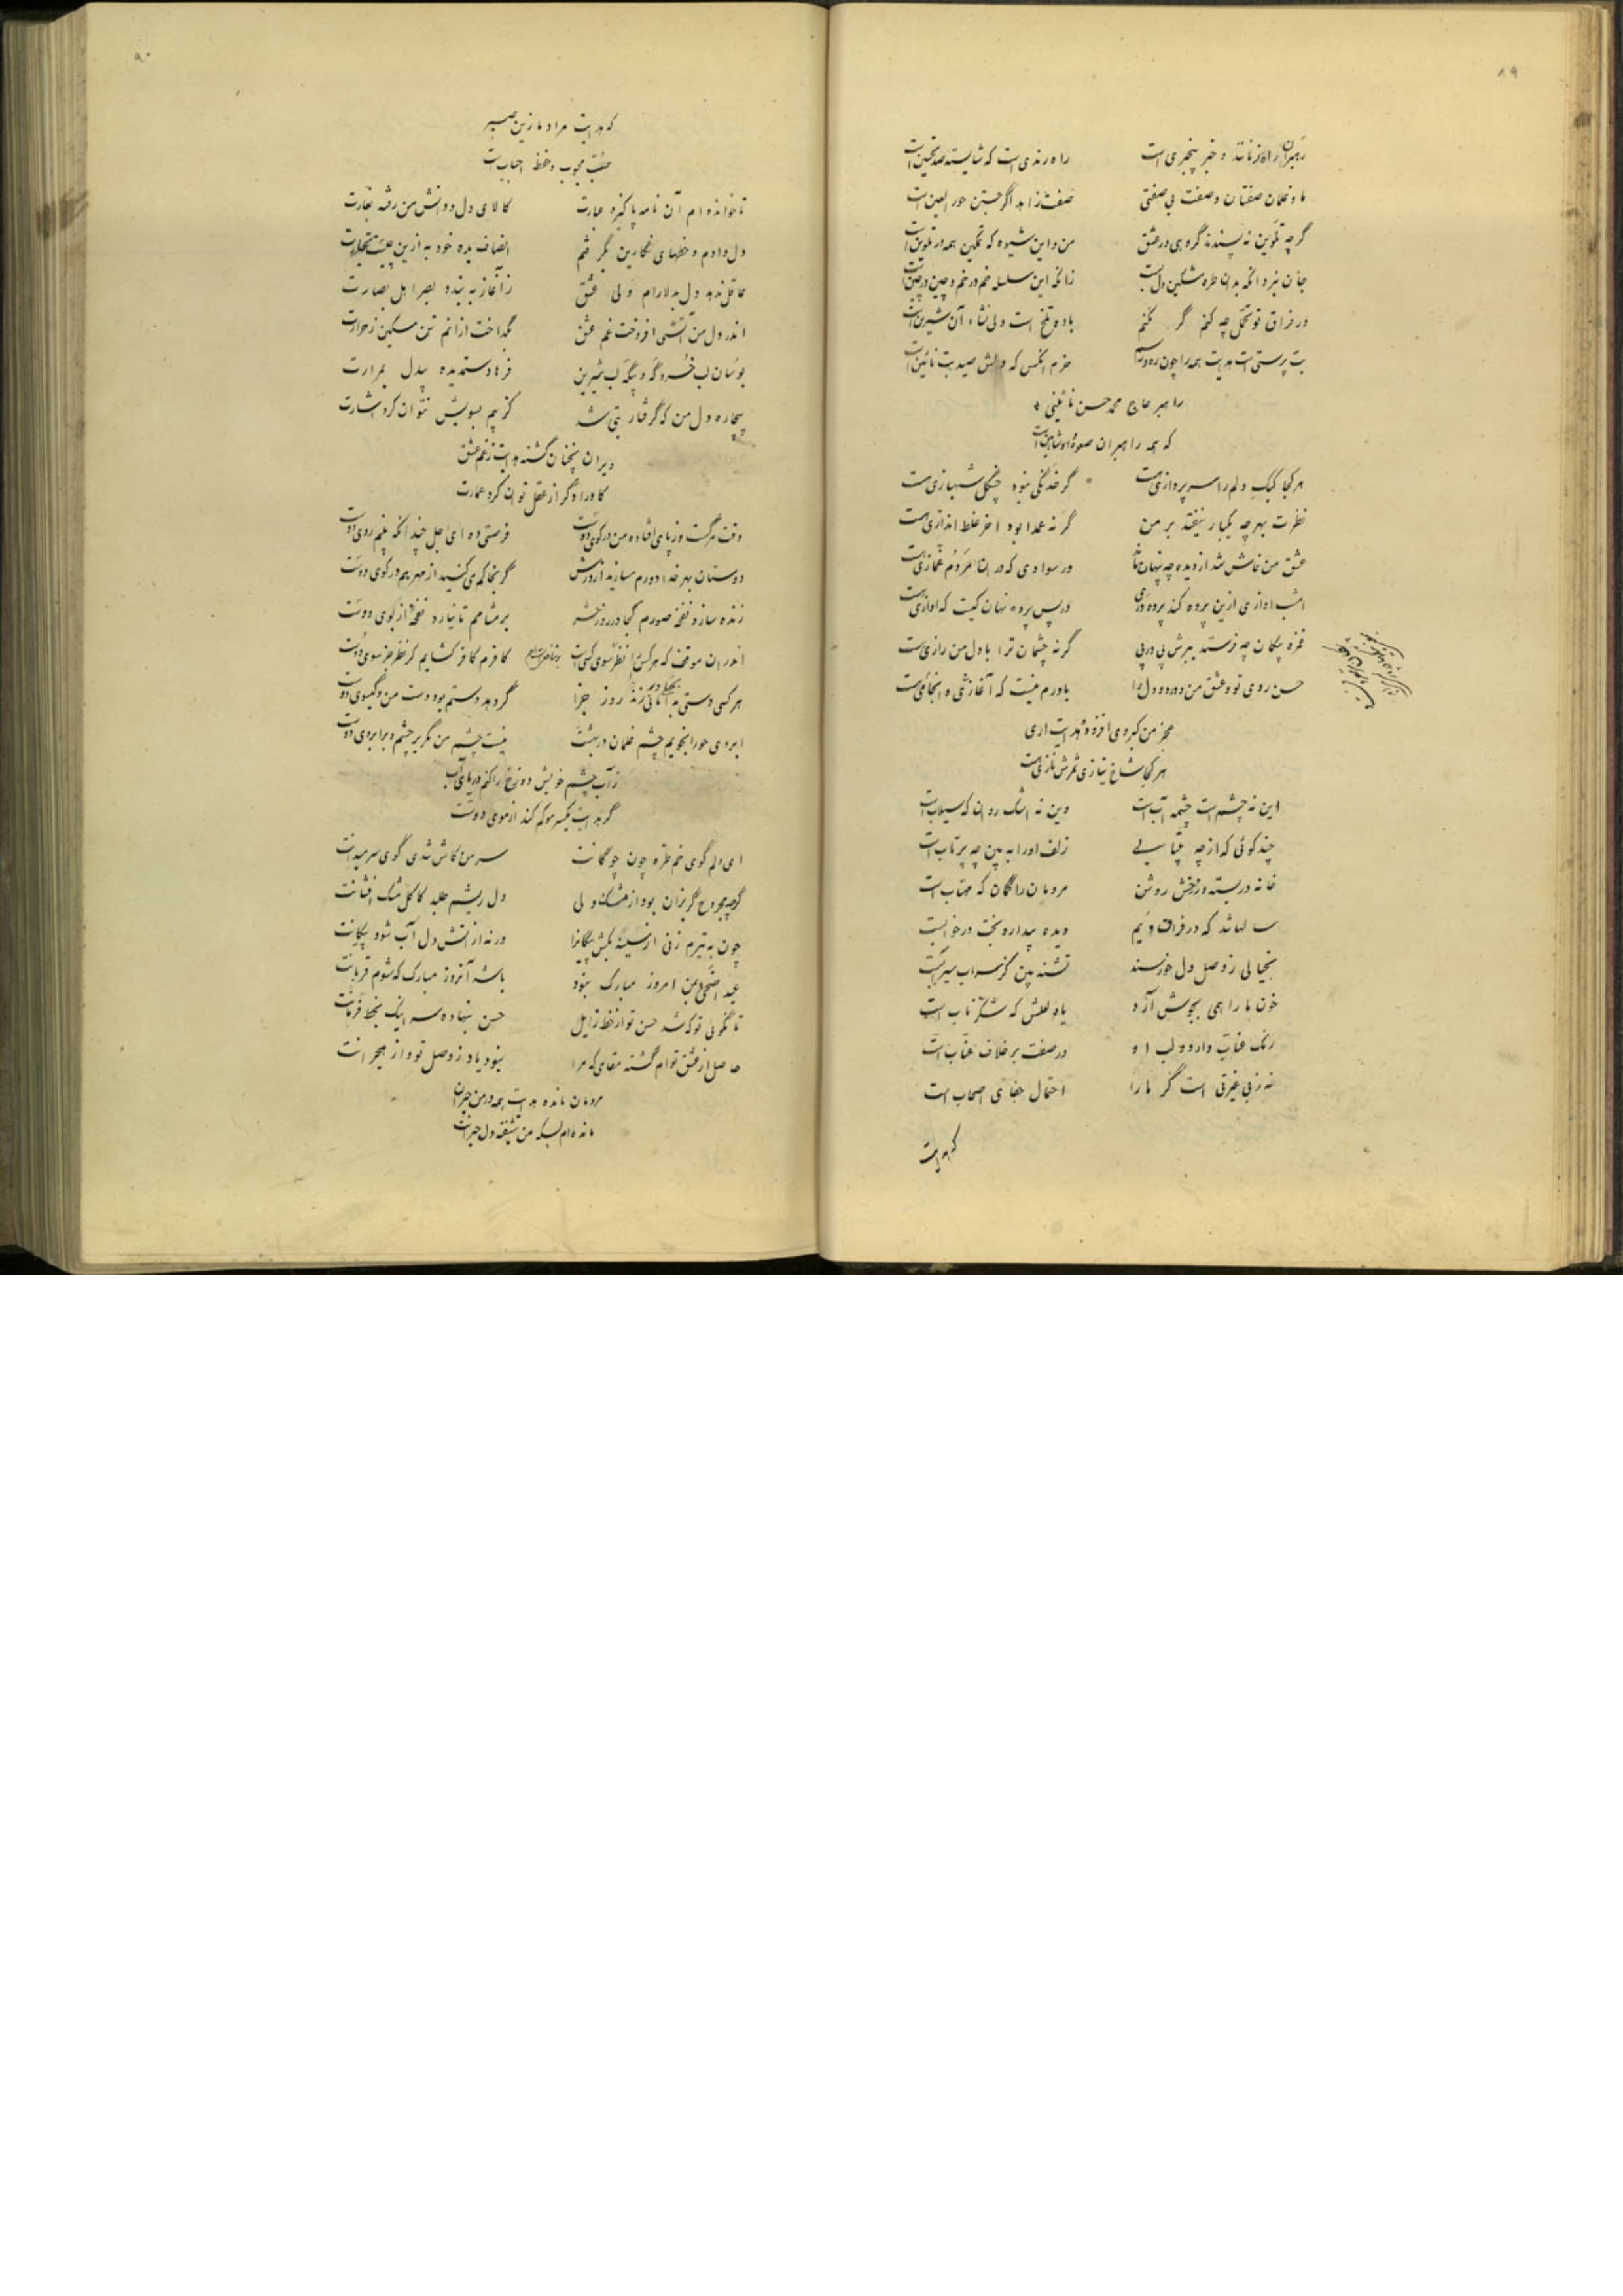 ۸۹
رهبران راه نمانند و خبر بیخبری است
راه رندی است که شایسته صد تحسین است
ما و غلمان صفتان و صفت بی صفتی
صفت زاهد اگر جستن حور العین است
گرچه تلوین نه پسندند گروهی در عشق
من و این شیوه که تمکین همه در تلوین است
جان نبرد آنکه بدان طره مشکین دل بست
زانکه این سلسله خم در خم و چین در چین است
در فراق تو تحمل چه کنم گر نکنم
باده تلخ است ولی نشاء آن شیرین است
بت پرستی است هدایت همه را چون ره و رسم
خرم آنکس که دلش صید بت نائین است
راهبر حاج محمد حسن نائینی
که همه راهبران صعوه و او شاهین است
هر کجا کبک دلم را سر پروازی هست
گر خدنگی نبود چنگل شهبازی هست
نظرت بهر چه یکبار نیفتد بر من
گر نه عمدا بود آخر غلط اندازی هست
عشق من فاش شد از دیده چه پنهان ماند
در سوادی که در آن مردم غمازی هست
امشب آوازی ازین پرده کند پرده دری
در پس پرده نهان کیست که آوازی هست
غمزه پیکان چه فرستد ببرش پی در پی
گر نه چشمان ترا با دل من رازی هست
حسن روی تو و عشق من و درد دل را
باورم نیست که آغازی و انجامی هست
هر کجا شاخ نیازی ثمرش نازی هست
این نه چشم است چشمه آب است
وین نه اشک روان که سیلاب است
چند گوئی که از چه بیتابی
زلف او را به بین چه پر تاب است
خانه در بسته و ز رخش روشن
مردمان را گمان که مهتاب است
سالها شد که در فراق ویم
دیده بیدار و بخت در خوابست
بخیالی ز وصل دل خورسند
تشنه بین کز سراب سیرابست
خون ما را همی بجوش آرد
یاد لعلش که شکر ناب است
رنک عناب دارد و لب او
در صفت بر خلاف عناب است
نه ز بی غیرتی است گر ما را
احتمال جفای اصحاب است
که هدایت
۹۰
که هدایت مراد ما زین صبر
محبوب و حفظ احباب است
تا خوانده ام آن نامه پاکیزه عبارت
کالای دل و دانش من رفته بغارت
دل دادم و خطهای نگارین
انصاف بده خود به ازین چیست تجارت
عاقل ندهد دل بدلارام ولی عشق
ز آغاز به بندد بصر اهل بصارت
اندر دل من آتشی افروخت غم عشق
بگداخت از آنم تن مسکین ز حرارت
بوسان لب خسرو گه و بیگه لب شیرین
فرهاد ستمدیده بیدل بمرارت
بیچاره دل من که گرفتار بتی شد
کز بیم بسویش نتوان کرد اشارت
ویران نچنان گشته هدایت ز غم عشق
کاو را دگر از عقل توان کرد عمارت
وقت مرگست و ز پای افتاده من در کوی دوست
فرصتی ده ای اجل چندانکه بینم روی دوست
دوستان بهر خدا دورم مسازید از درش
گر بخاکم می کنید از مهر هم در کوی دوست
زنده سازد نفخه صورم کجا در روز حشر
بر مشامم تا نیارد نفخه از بوی دوست
اندر آن موقف که هر کس را نظر سوی کسی است
کافرم کافر گشایم گر نظر جز سوی دوست
هر کسی دستی به دامانی زند روز جزا
گر دهد دستم بود دست من و گیسوی دوست
ابروی حورا نجویم چشم غلمان در بهشت
نیست چشم من مگر بر چشم و بر ابروی دوست
ز آب چشم خویش دوزخ را کنم دریای آب
گر هدایت یکسر مو کم کند از موی دوست
ای دلم گوی خم طره چون چوگانت
سر من کاش شدی گوی سر میدانت
گرچه مجروح گریزان بود از مشک ولی
دل ریشم طلبد کاکل مشک افشانت
چون به تیرم زنی از سینه بکش پیکانرا
ورنه از آتش دل آب شود پیکانت
عید اضحی بمن امروز مبارک نبود
باشد آنروز مبارک که شوم قربانت
تا نگوئی تو که شد حسن تو از خط زایل
حسن بنهاده سر اینک بخط فرمانت
حاصل از عشق توام گشته مقامی که مرا
نبود یاد ز وصل تو و از هجرانت
مردمان مانده هدایت همه در من حیران
مانده ام بسکه من شیفته دل حیرانت